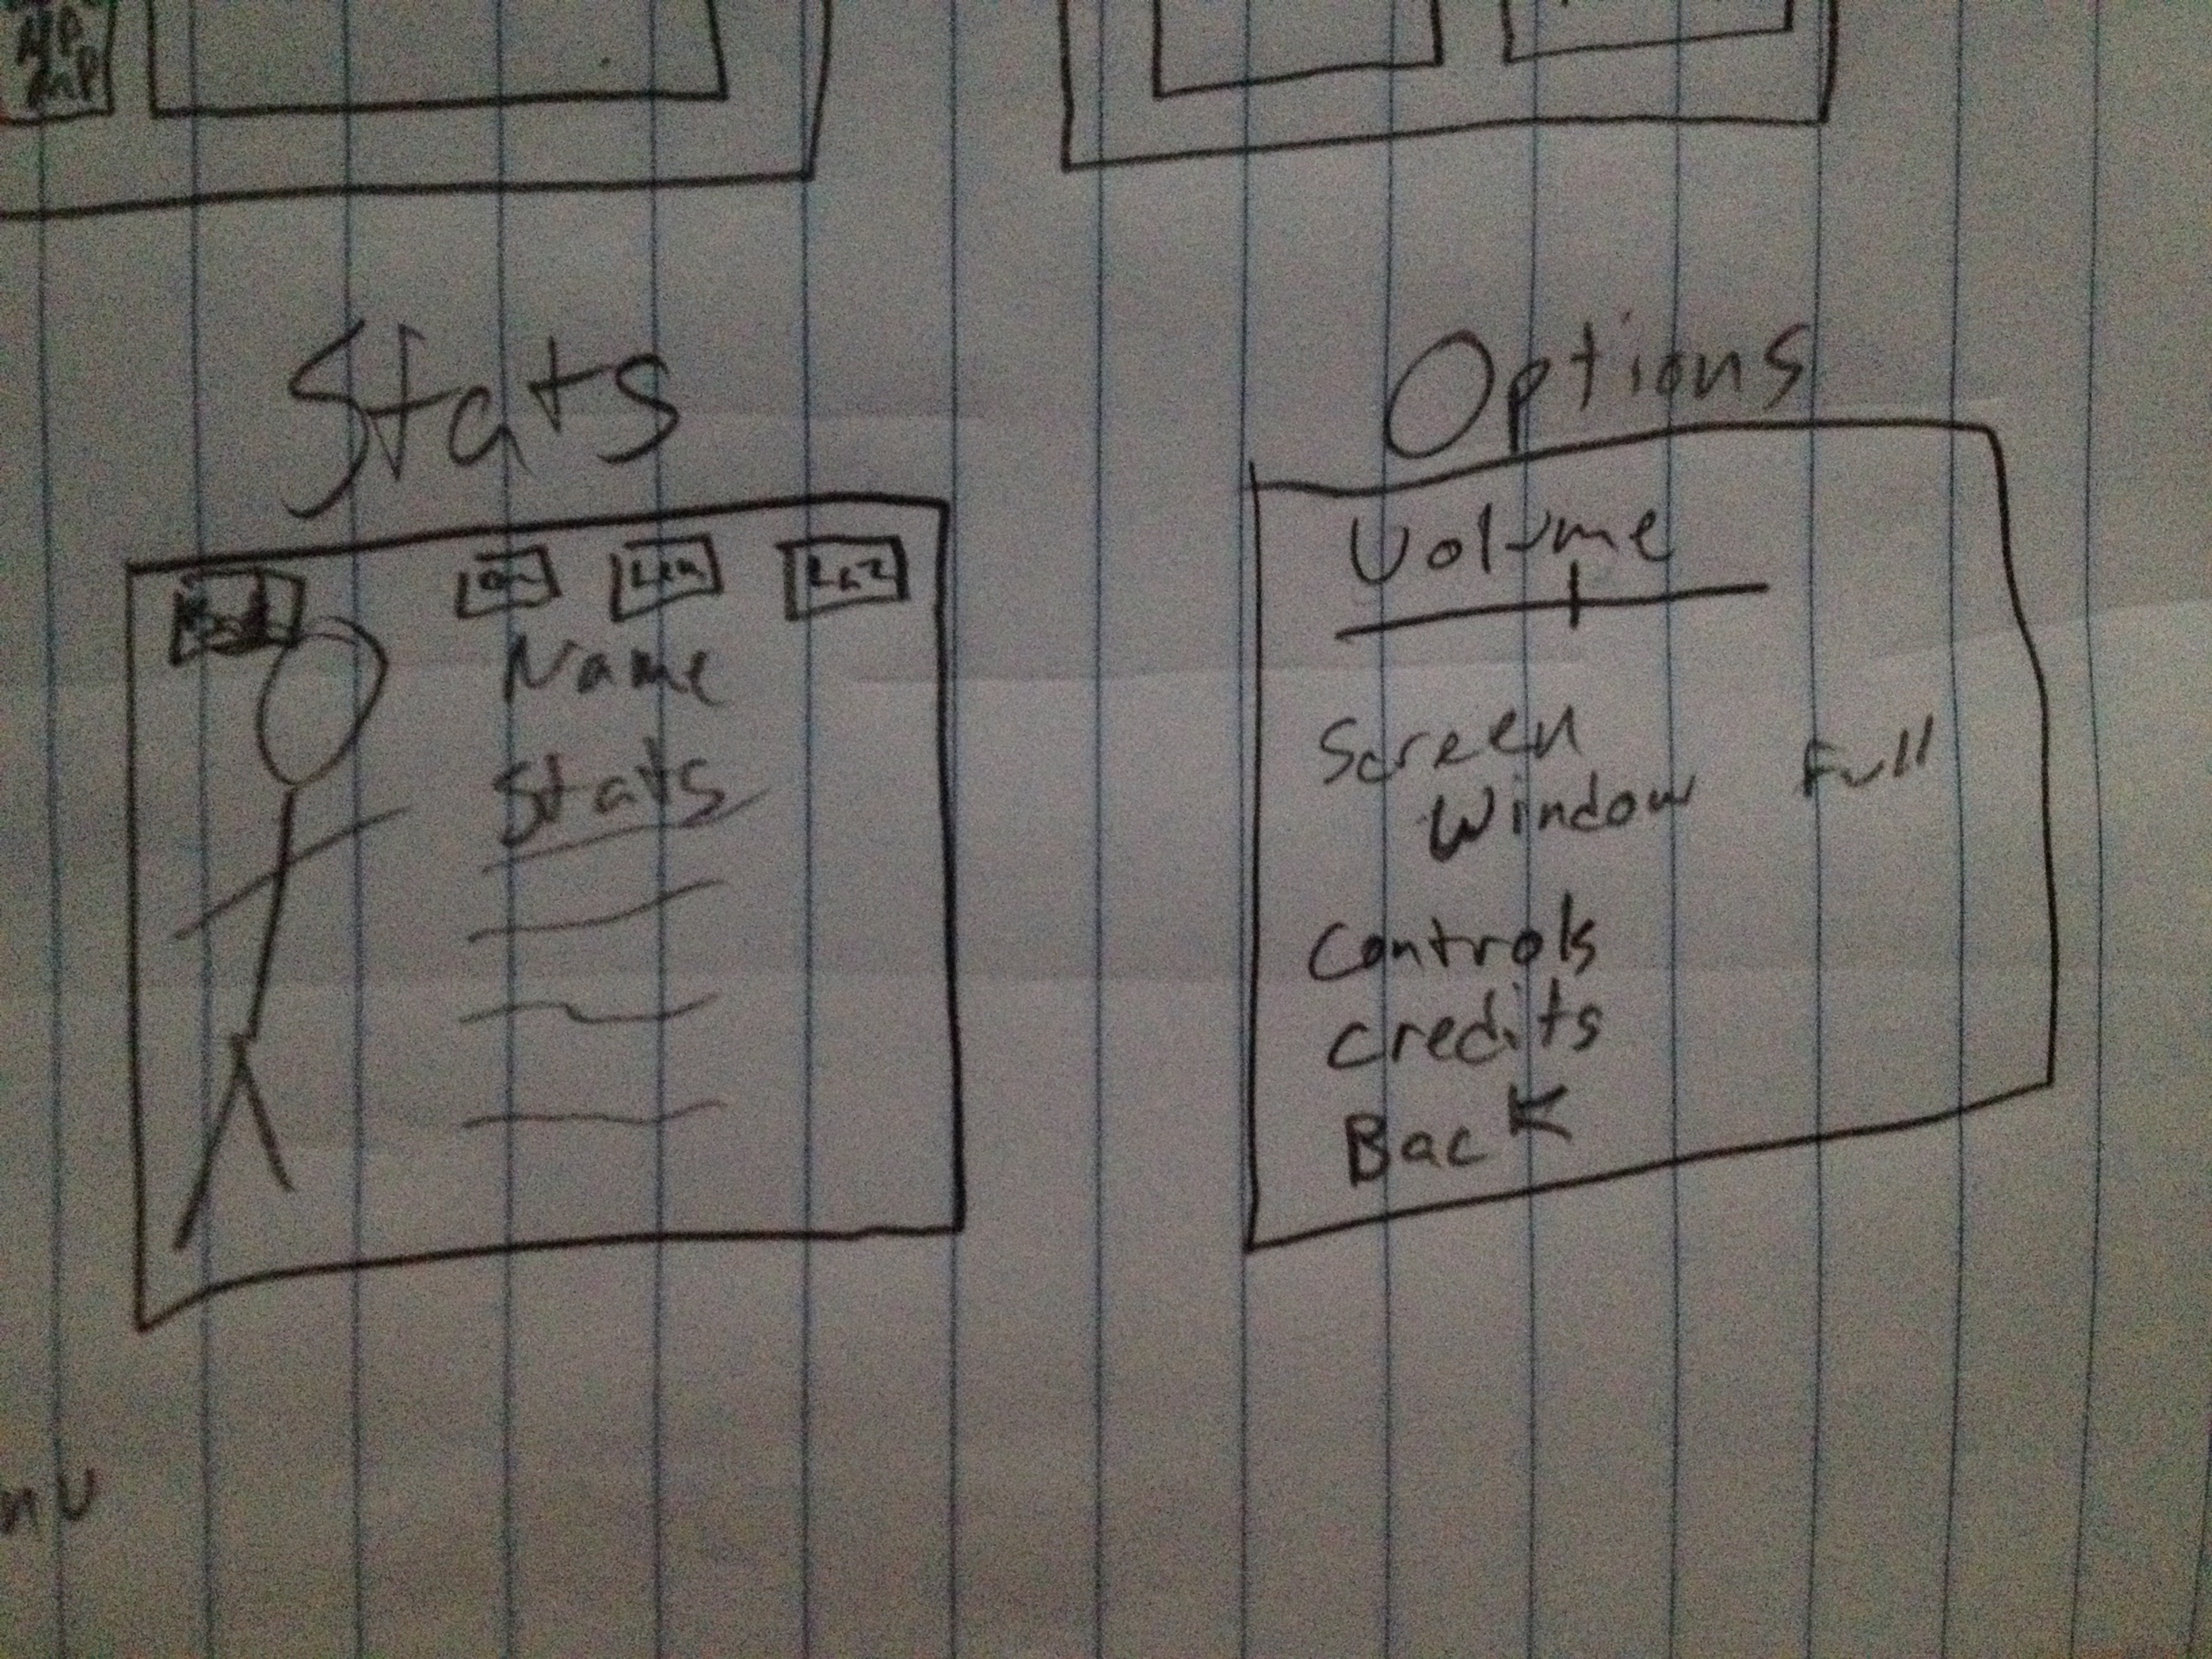 Stats
Name
Stats
Options
Volume
Screen
Window Full
Controls
credits
Back